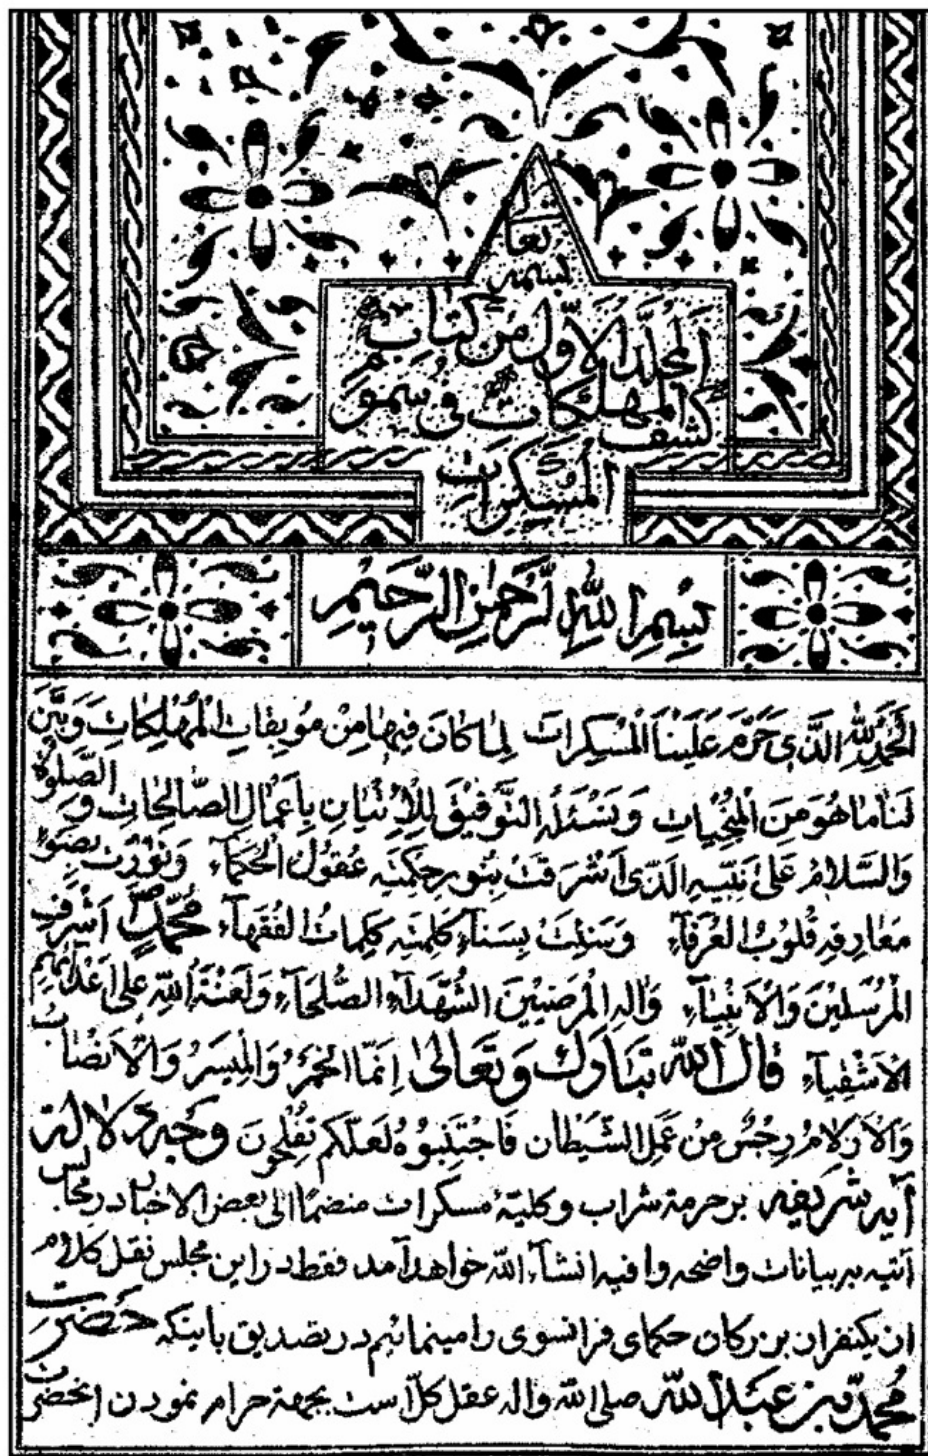 بسمه تعالی شأنه
المجلد الاوّل من کتاب
کشف المهلکات فی سموم
المسکرات
بِسْمِ اللهِ الرَّحْمٰنِ الرَّحیٖمِ
اَلحَمدُ لِلّٰهِ الَّذی حَرَّمَ عَلَینَا المُسکِراتِ لِمٰا کانَ فیهٰا مِنْ مُوبِقاتِ الْمُهْلِکاتِ وَ بَیَّنَ
لَنٰا مٰا هُوَ مِنَ المُنجِیاتِ وَ نَسْئَلُه التَّوفیقَ لِلْاِتْیٰانِ بِاَعْمٰالِ الصّٰالِحٰاتِ وَ الصَّلوةُ
وَالسَّلامُ عَلیٰ نَبِیِّهِ الَّذی اَشْرَقَتْ بِنُورِ حِکمَتِه عُقوُلُ الحُکَمآءِ وَ نُوِّرَتْ بِضَوْءِ
مَعٰارِفِه قُلوُبُ العُرَفآءِ وَ سَنِئَتْ بِسَنآءِ کَلِمَتِه کَلِماتُ الفُقَهآءِ مُحَمَّدٍ اَشْرَفِ
الْمُرسَلینَ وَالْاَنبِیٰآءِ وَ اٰلِهِ الْمَرضیّینَ الشُّهَدآءِ الصُّلَحآءِ وَ لَعْنَةُ اللّٰهِ عَلیٰ اَعْدآئِهِمِ
الاَشْقِیٰآءِ قالَ اللّٰه تَبٰارَکَ وَ تَعٰالیٰ اِنَّمَا الخَمرُ وَ المَیسِرُ وَ الْاَنصٰابُ
وَ الاَزلامُ رِجْسٌ مِن عَمَلِ الشَّیطان فَاجْتَنِبوُهُ لَعَلَّکم تُفْلِحوُنَ وجه دلالة
آیه شریفه بر حرمة شراب و کلیّهٔ مسکرات منضمّاً الی بعض الاخبار در مجالس
آتیه ببیانات واضحه وافیه انشآء اللّه خواهد آمد فقط در این مجلس نقل کلام
از یکنفر از بزرکان حکمای فرانسوی را مینمائیم در تصدیق باینکه حضرت
محمّد بن عبد اللّه صلی اللّه و اله عقل کلّ است بجهة حرام نمودن انحضرت